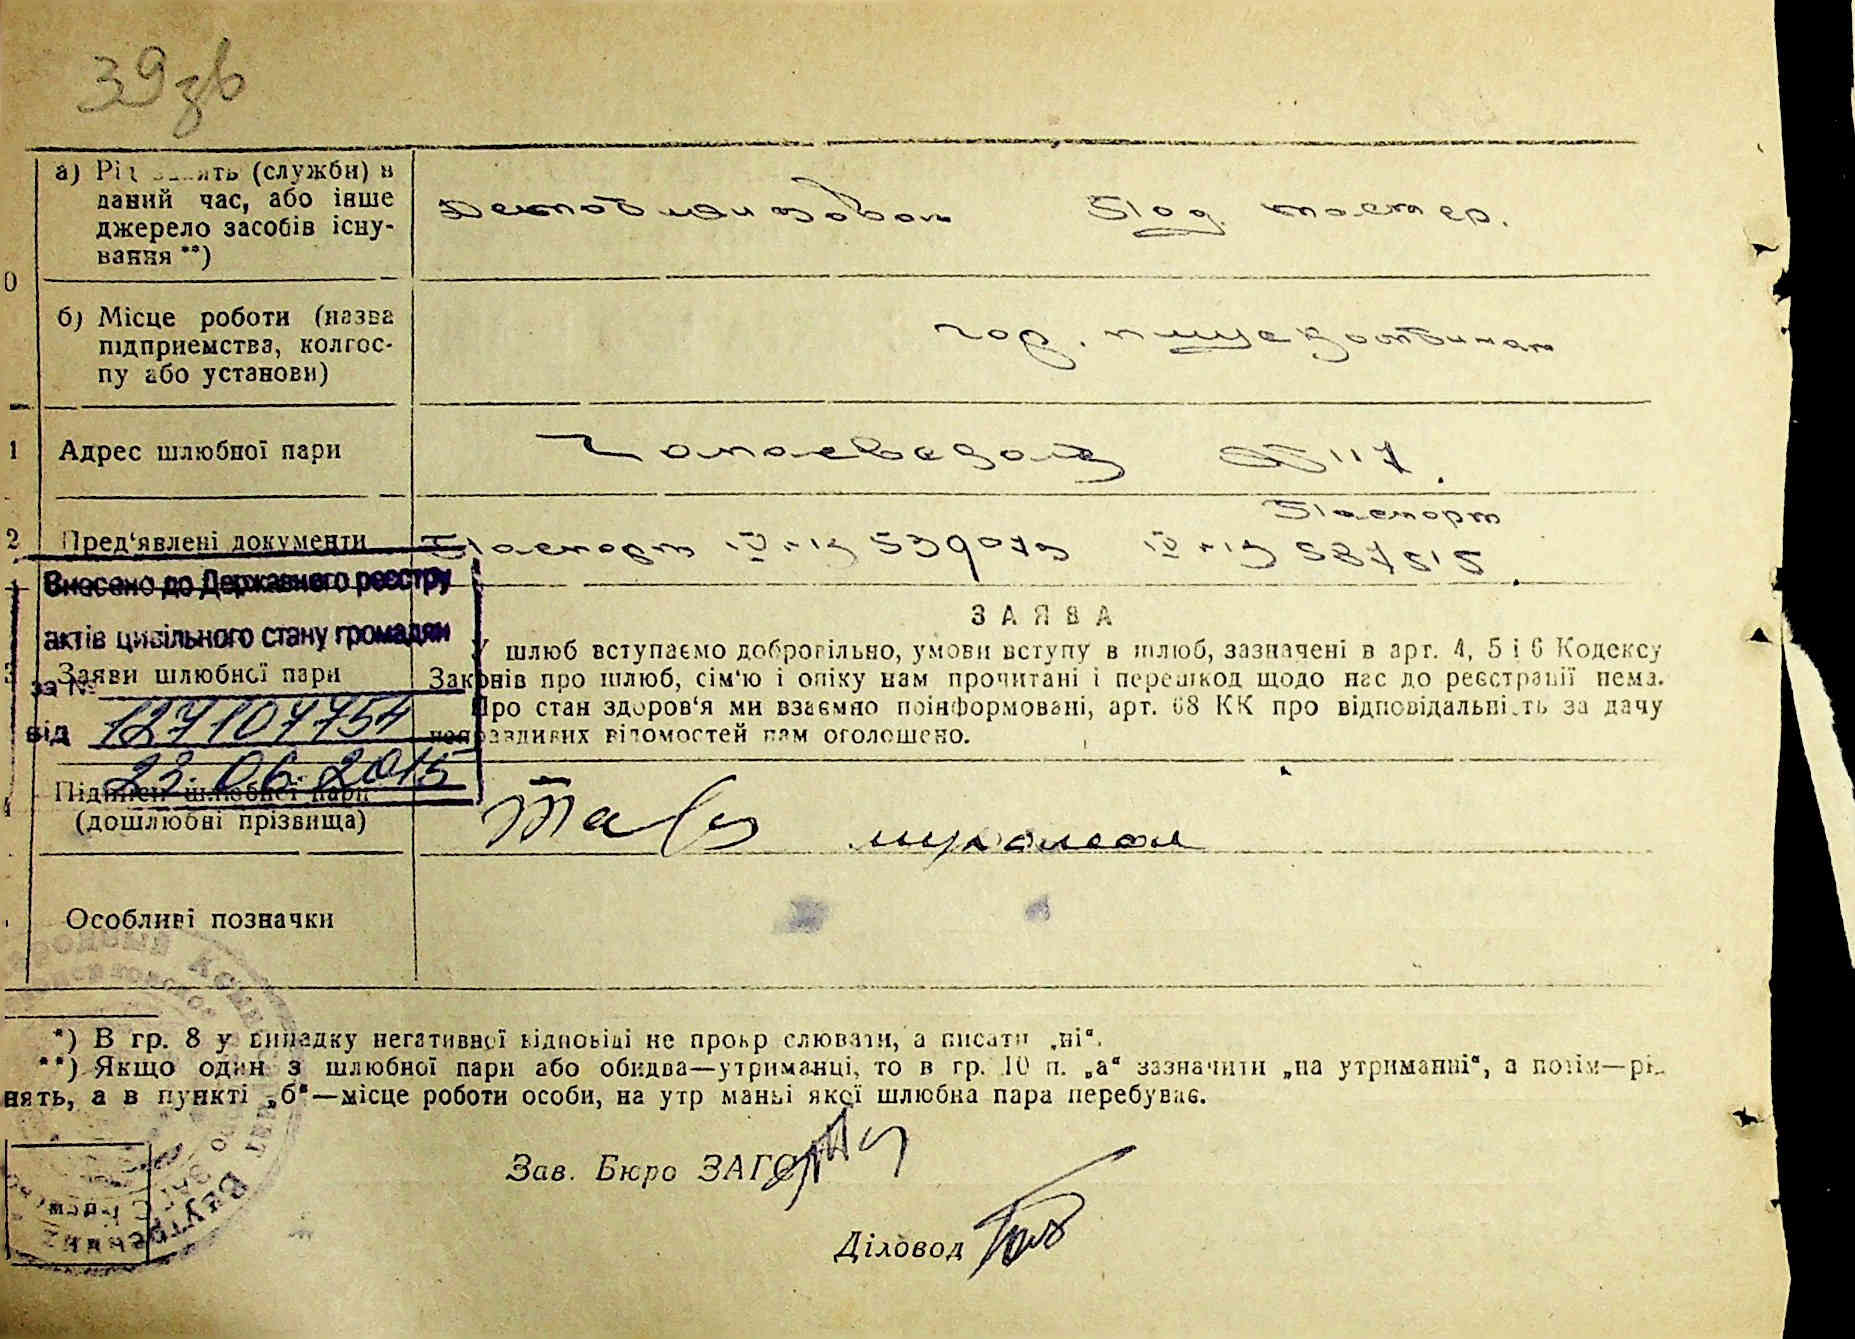 39 зв
а) Рід занять (служби) в
даний час, або інше
джерело засобів існу-
вання **)
Демобилизован Под. мастер.
0
б) Місце роботи (назва
підприємства, колгос-
пу або установи)
гор. пищекомбинат
1 Адрес шлюбної пари
2 Пред'явлені документи
Паспорт
Паспорт IV
Внесено до Державного реєстру
актів цивільного стану громадян
за №
від 127107754
23.06.2015
З А Я В А
У шлюб вступаємо добровільно, умови вступу в шлюб, зазначені в арт. 4, 5 і 6 Кодексу
3 Заяви шлюбної пари
Законів про шлюб, сім'ю і опіку нам прочитані і перешкод щодо нас до реєстрації нема.
Про стан здоров'я ми взаємно поінформовані, арт. 68 КК про відповідальність за дачу
неправдивих відомостей нам оголошено.
4 Підписи шлюбної пари
(дошлюбні прізвища)
Особливі позначки
*) В гр. 8 у випадку негативної відповіді не прокреслювати, а писати „ні“.
**) Якщо один з шлюбної пари або обидва—утриманці, то в гр. 10 п. „а“ зазначити „на утриманні“, а потім—рі
нять, а в пункті „б“—місце роботи особи, на утриманні якої шлюбна пара перебуває.
Зав. Бюро ЗАГС
Діловод